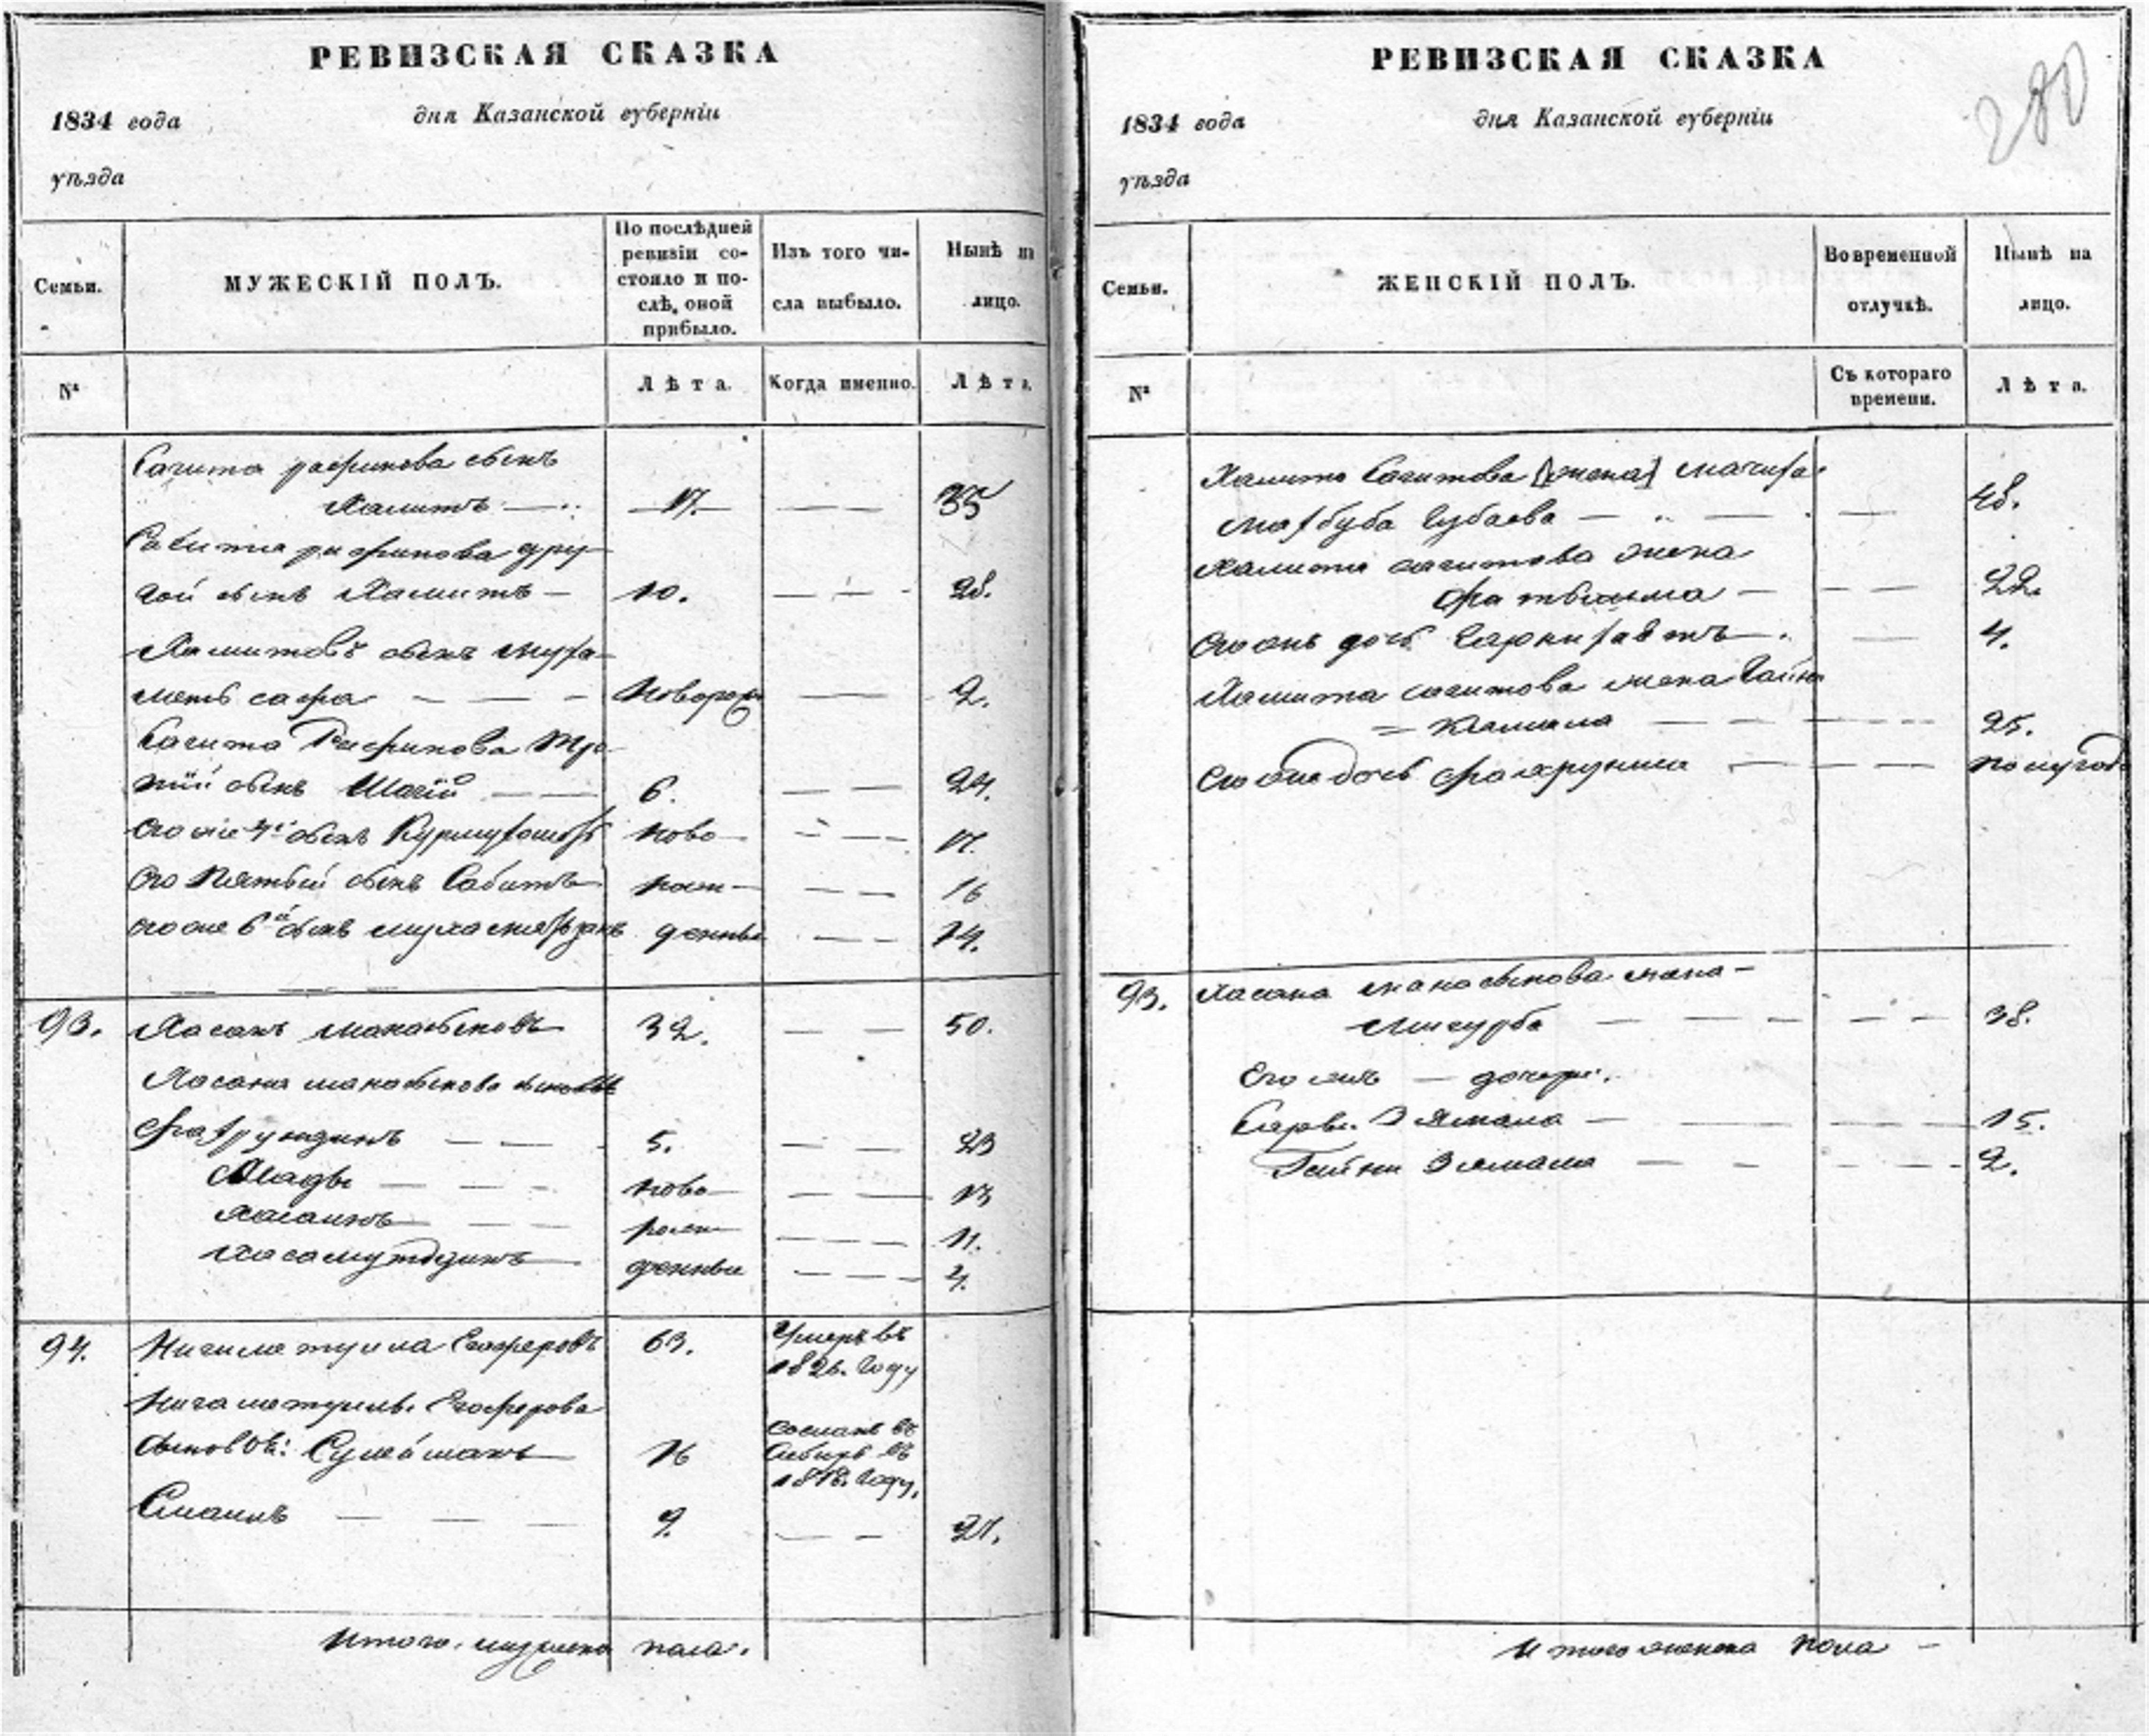 РЕВИЗСКАЯ СКАЗКА
1834 года
дня Казанской губерніи
уѣзда
Семьи.
МУЖЕСКІЙ ПОЛЪ.
По послѣдней ревизіи состояло и послѣ, оной прибыло.
Изъ того числа выбыло.
Нынѣ на лицо.
№
Лѣта.
Когда именно.
Лѣта
Сагита рафикова сынъ
Халитъ 17. 35
Сагита рафикова дру-
гой сынъ Хамитъ 10. 28.
Хамитовъ сынъ муха-
метъ сафа Новорож 2.
Сагита Рафикова Тре-
тій сынъ Шагій 6. 24.
его же 4й сынъ ново 17.
Его Пятый сынъ Сабитъ рож- 16
его же 6й сынъ денные 14.
93. Хасанъ манасыповъ 32. 50.
Хасана манасыпова сыновья
Фахрундинъ 5. 23
ново 13
рож 11.
Хасамутдинъ денные 4.
94. Нигаметулла 63. Умеръ въ
1826. Году
Нигаметуллы
сыновья: Сулейманъ 16 сосланъ въ
Сибирь въ
1818. Году.
Смаилъ 9. 27.
Итого мужеска пола.
РЕВИЗСКАЯ СКАЗКА
280
1834 года
дня Казанской губерніи
уѣзда
Семьи.
ЖЕНСКІЙ ПОЛЪ.
Во временной отлучкѣ.
Нынѣ на лицо.
№
Съ котораго времени.
Лѣта.
Халита Сагитова [жена] мачиха
махбуба Губаева 48.
Халита сагитова жена
Фатыма 22.
его онъ дочь 4.
Хамита сагитова жена Гайни
= Камала 25.
его же дочь Фахруниса полугода
93. Хасана манасыпова жена
38.
Его жъ дочери.
Зямала 15.
Гайни Зямала 2.
Итого женска пола